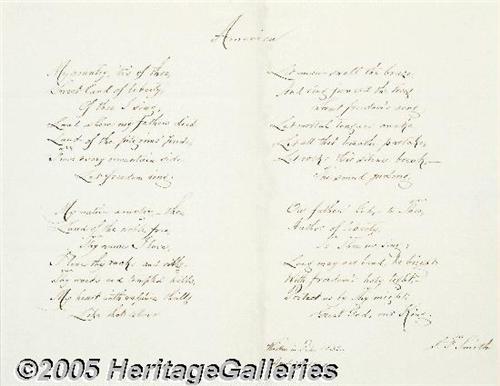 America
My country, 'tis of thee,
Sweet land of liberty
Of thee I sing,
Land where my fathers died
Land of the pilgrims' pride,
From every mountain side
Let freedom ring.
My native country - thee
Land of the noble free
Thy name I love,
I love thy rocks and rills,
Thy woods and templed hills,
My heart with rapture thrills
Like that above
Let music swell the breeze,
And ring from all the trees
Sweet freedom's song
Let mortal tongues awake
Let all that breathe partake,
Let rocks their silence break -
The sound prolong.
Our fathers' God, to Thee,
Author of liberty,
To Thee we sing;
Long may our land be bright
With freedom's holy light,
Protect us by Thy might,
Great God, our King.
Written in 1832
S. F. Smith
©2005 HeritageGalleries.com